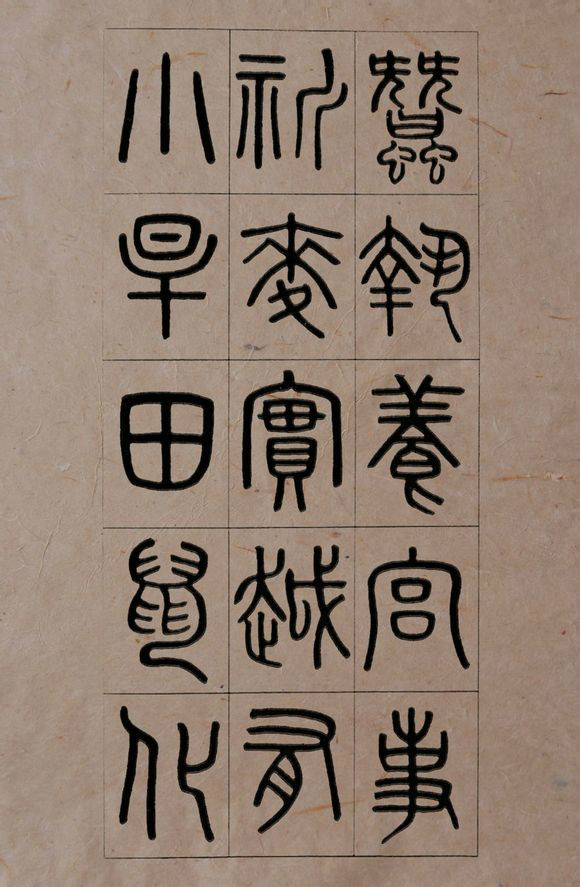 蠶執養宮事
祈麥實越有
小旱田鼠化